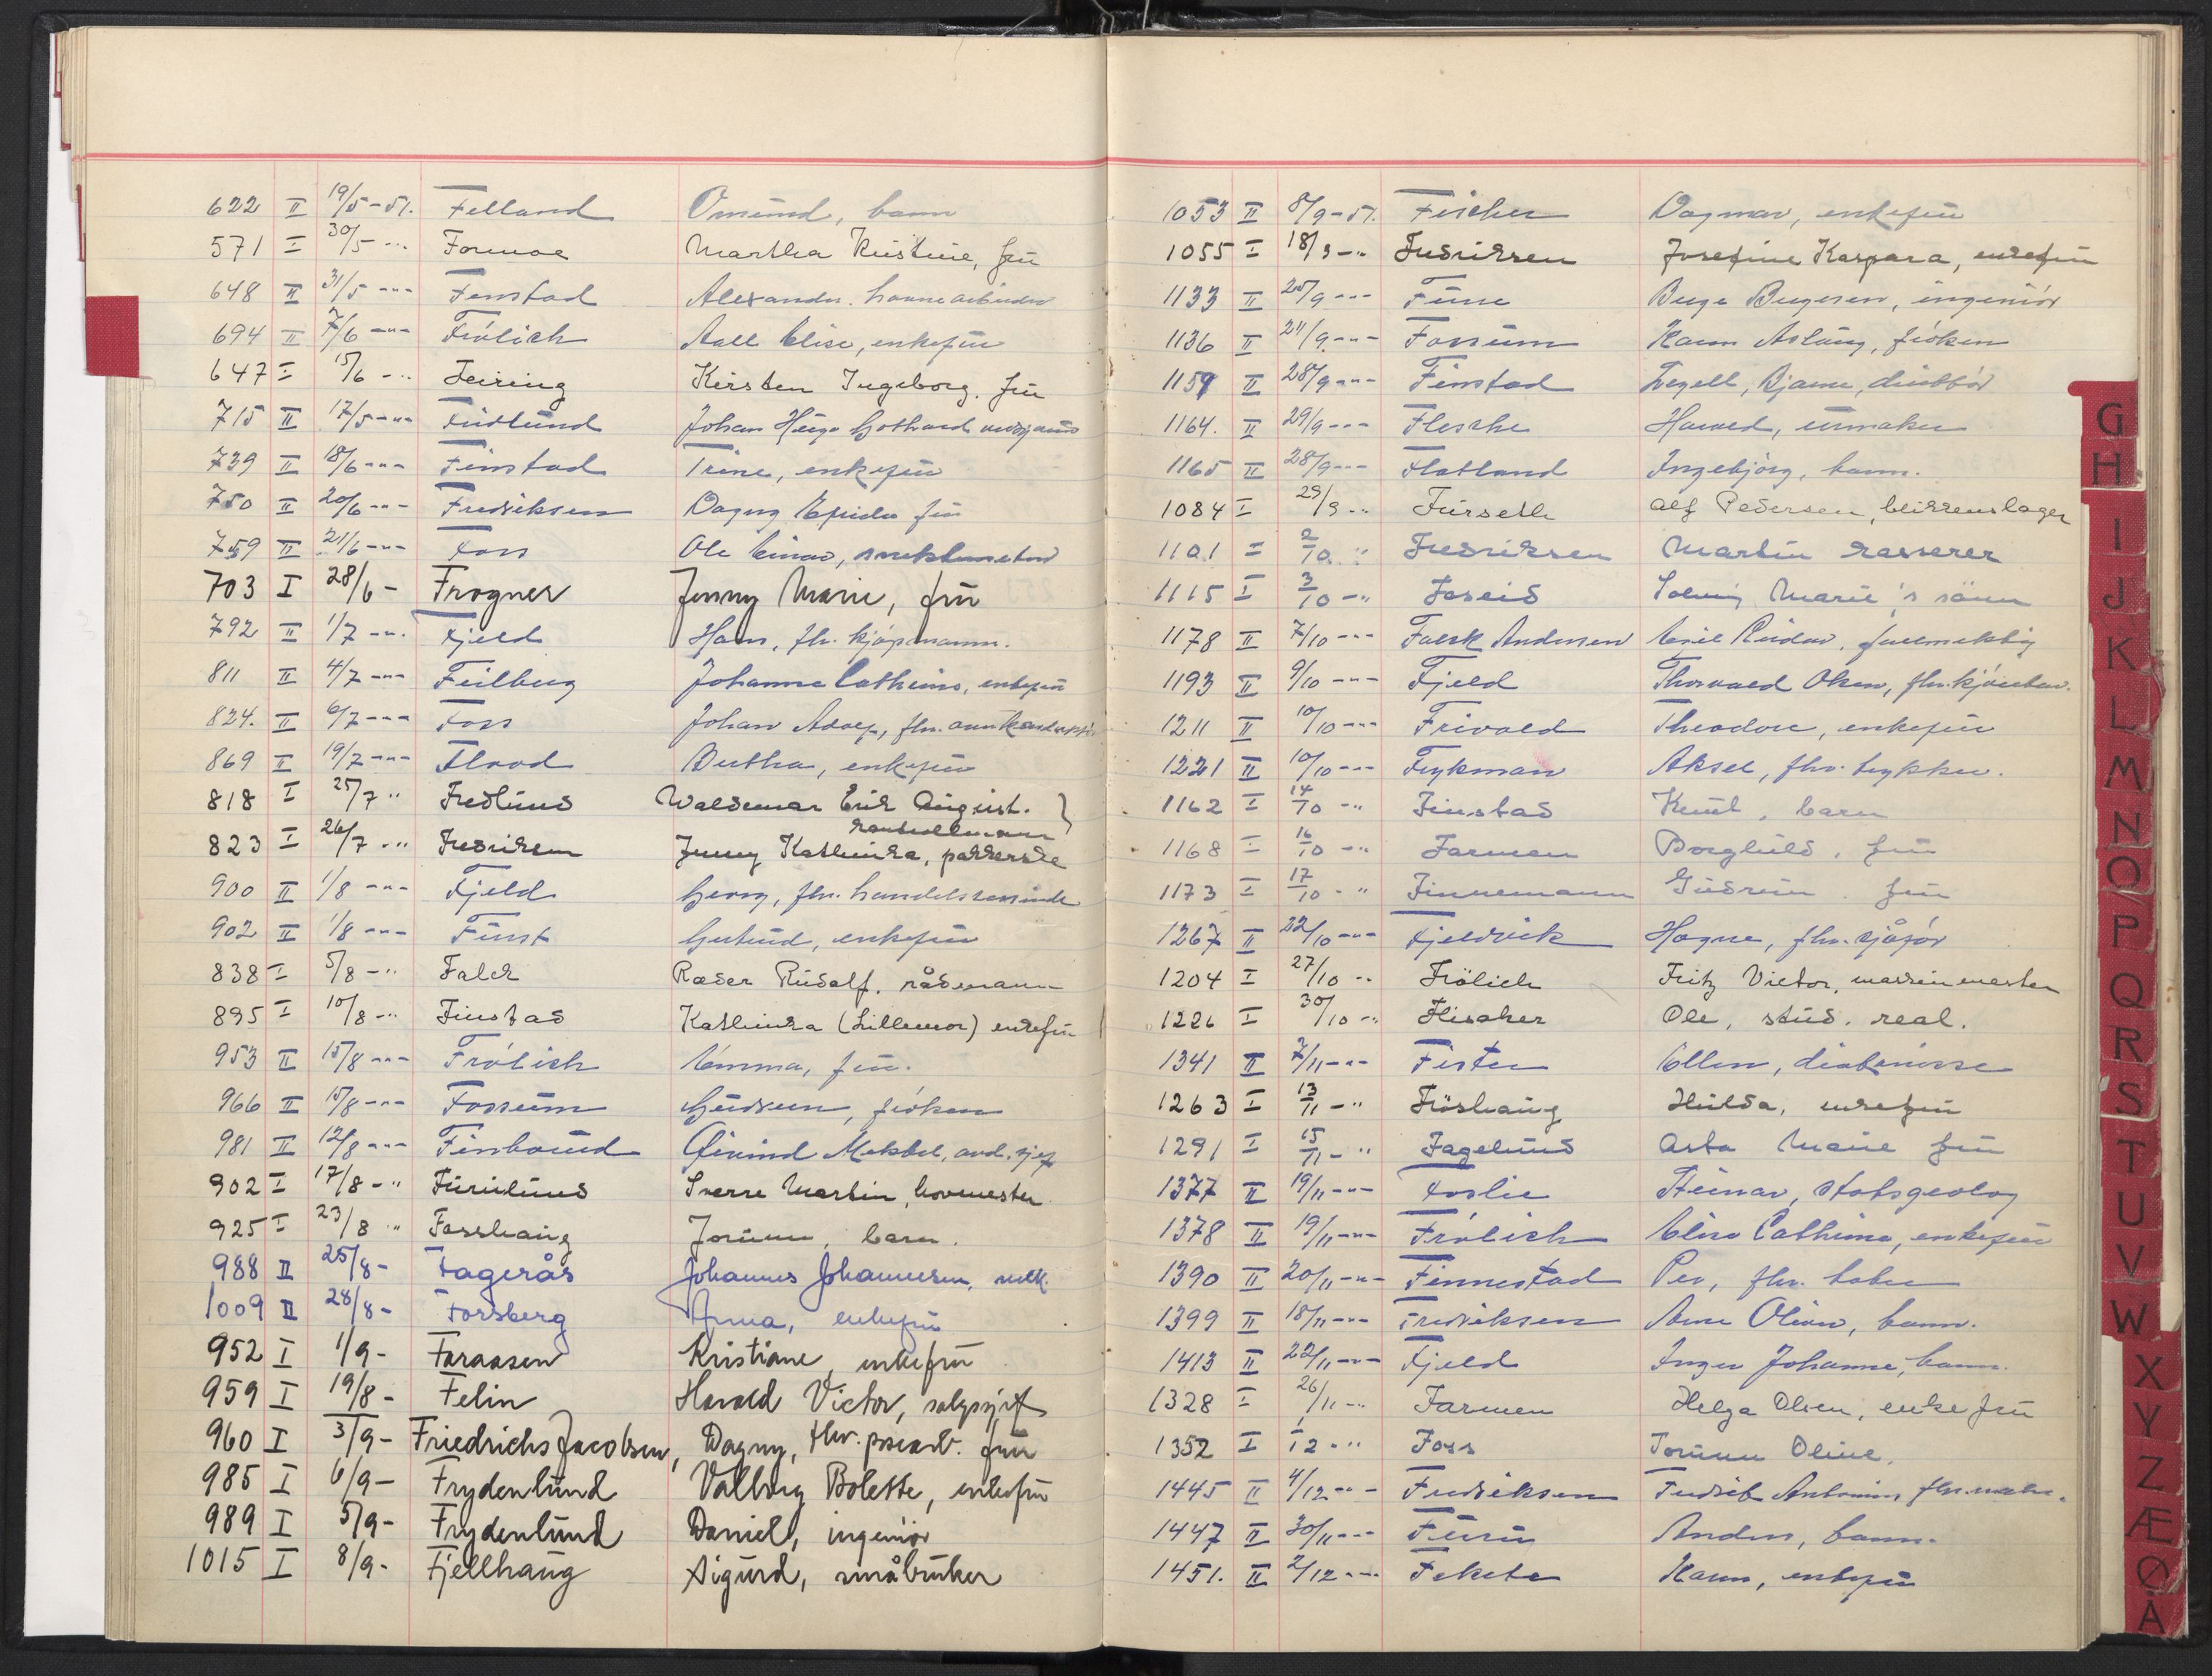 622 II 19/5-51. Felland Omund, barn
571 I 30/5 -"- Formoe Martha Kristine, fru
648 II 31/5 -"- Fenstad Alexander. havnearbeider
694 II 7/6 -"- Frölich Aall Elise, enkefru
647 I 15/6 -"- Feiring Kirsten Ingeborg. fru
715 II 17/5 -"- Fridlund Johan Hugo Gothard
739 II 18/6 -"- Finstad Trine, enkefru
750 II 20/6 -"- Fredriksen Dagny Elfrida fru
759 II 21/6 -"- Foss Ole Einar,
703 I 28/6 - Frogner Jenny Marie, fru
792 II 1/7 -"- Fjeld Hans, fhv. kjøpmann.
811 II 4/7 -"- Feilberg Johanne Cathrine, enkefru
824. II 6/7 -"- Foss Johan Adolf, fhv.
869 II 19/7 -"- Flood Bertha, enkefru
818 I 25/7 " Fredlund Waldemar Erik August.
kontrollmann
823 I 26/7 -" Fredriksen Jenny Kathinka, pakkerske
900 II 1/8 -"- Fjeld Georg, fhv. handelsreisende
902 II 1/8 -"- Fürst Gertrud, enkefru
838 I 5/8 -" Falck Ræder Rudolf. rådmann
895 I 10/8 -" Finstad Kathinka (Lillemor) enkefru
953 II 15/8 -"- Frölich Emma, fru.
966 II 15/8 -"- Fossum Gudrun, frøken
981 II 12/8 -"- Finboud Øivind Mekkel, avd. sjef
902 I 17/8 -" Furulund Sverre Martin, hovmester
925 I 23/8 " Fosshaug Jorunn, barn.
988 II 25/8 - Fagerås Johannes Johannesen, snekk.
1009 II 28/8 - Forsberg Anna, enkefru
952 I 1/9 - Faraasen Kristiane, enkefru
959 I 19/8 - Felin Harald Victor, salgssjef
960 I 3/9 - Friedrichs Jacobsen, Dagny, fhv. fru
985 I 6/9 - Frydenlund Valborg Bolette, enkefru
989 I 5/9 - Frydenlund Daniel, ingeniör
1015 I 8/9 - Fjellhaug Sigurd, småbruker
1053 II 8/9-51. Fischer Dagmar, enkefru
1055 I 18/9 -" Fredriksen Josefine Kaspara, enkefru
1133 II 25/9 -"- Fune Birger Birgersen, ingeniör
1136 II 24/9 -"- Fossum Karen Aslaug, frøken
1159 II 28/9 -"- Finstad Tegell, Bjarne, direktör
1164. II 29/9 -"- Flesche Harald, urmaker
1165 II 28/9 -"- Flatland Ingebjörg, barn.
1084 I 29/9 -" Furseth Alf Pedersen, blikkenslager
1101 I 2/10 " Fredriksen Martin kasserer
1115 I 3/10 -" Foseid Solveig Marie's sönn
1178 II 7/10 -"- Falck Andersen Emil Reidar, fullmektig
1193 II 9/10 -"- Fjeld Thorvald Olsen, fhv. kjörekar.
1211 II 10/10 -"- Frivold Theodore, enkefru
1221 II 10/10 -"- Frykman Aksel, fhv. trykker.
1162 I 14/10 -" Finstad Knut, barn
1168 I 16/10 -" Farmen Borghild. fru
1173 I 17/10 -" Finnemann Gudrun. fru
1267 II 22/10 -"- Fjeldvik Hagne, fhv. sjåfør
1204 I 27/10 -" Frölich Fritz Victor, maskinmester
1226 I 30/10 -" Flisaker Ole, stud. real.
1341 II 7/11 -"- Fister Ellen, diakonisse
1263 I 13/11 -" Fröshaug Hulda, enkefru
1291 I 15/11 -" Fagelund Asta Marie fru
1377 II 19/11 -"- Foslie Steinar, statsgeolog
1378 II 19/11 -"- Frölich Elise Cathrine, enkefru
1390 II 20/11 -"- Finnestad Per, fhv. baker
1399 II 18/11 -"- Fredriksen Arne Oliver, barn.
1413 II 22/11 -"- Fjeld Inger Johanne, barn.
1328 I 26/11 -" Farmen Helga Olsen, enkefru
1352 I 1/12 -" Foss Jorunn Oline.
1445 II 4/12 -"- Fredriksen Fredrik Antonius fhv.
1447 II 30/11 -"- Furu Anders, barn.
1451. II 2/12 -"- Fekete Karen, enkefru
G
H
I
J
K
L
M
N
O
P
Q
R
S
T
U
V
W
X
Y
Z
Æ
Ø
Å